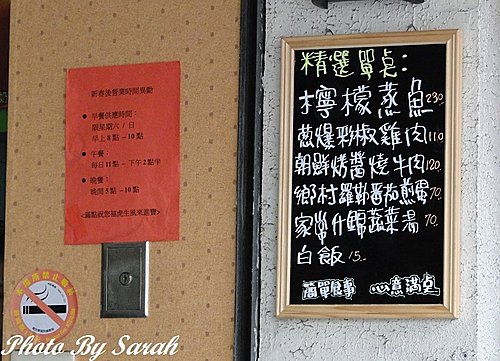 新春後營業時間異動
● 早餐供應時間：
限星期六／日
早上8點－10點
● 午餐：
每日11點－下午2點半
● 晚餐：
晚間5點－10點
<滿點祝您福虎生風來進寶>
精選單桌：
檸檬蒸魚230
蔥爆彩椒雞肉110
朝鮮烤醬燒牛肉120
鄉村羅勒番茄煎蛋70
家常什錦蔬菜湯70
白飯15
簡單食事 心意滿桌
Photo By Sarah